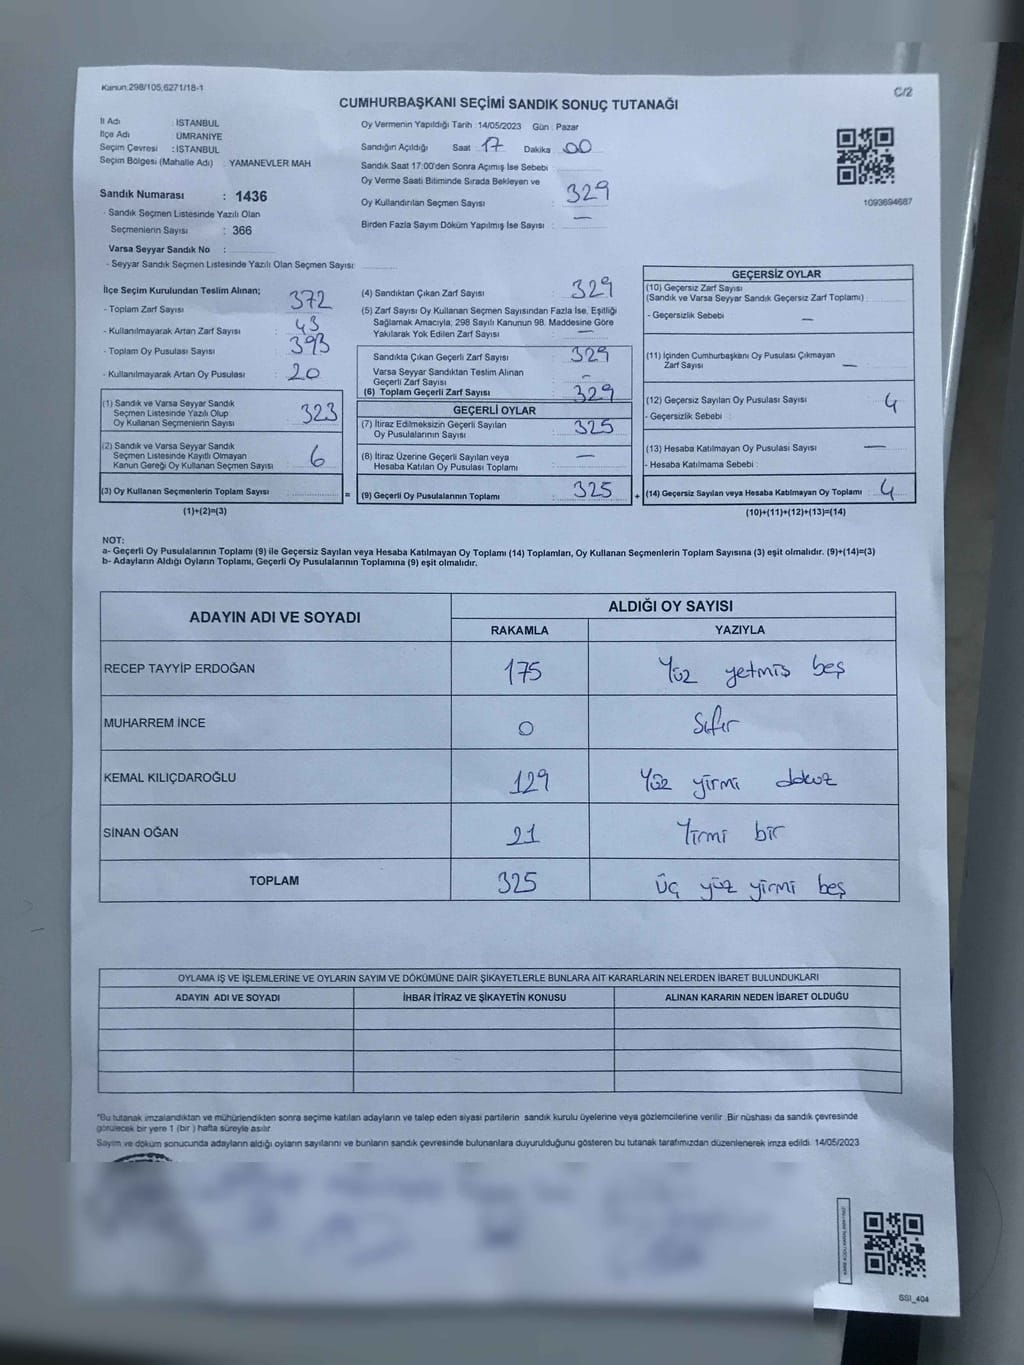 Kanun:298/105,6271/18-1
C/2
CUMHURBAŞKANI SEÇİMİ SANDIK SONUÇ TUTANAĞI
İl Adı : İSTANBUL
İlçe Adı : ÜMRANİYE
Seçim Çevresi : İSTANBUL
Seçim Bölgesi (Mahalle Adı) : YAMANEVLER MAH
Sandık Numarası : 1436
- Sandık Seçmen Listesinde Yazılı Olan
Seçmenlerin Sayısı : 366
Varsa Seyyar Sandık No :
- Seyyar Sandık Seçmen Listesinde Yazılı Olan Seçmen Sayısı:
Oy Vermenin Yapıldığı Tarih : 14/05/2023 Gün : Pazar
Sandığın Açıldığı Saat : 17 Dakika : 00
Sandık Saat 17:00'den Sonra Açımış İse Sebebi :
Oy Verme Saati Bitiminde Sırada Bekleyen ve
Oy Kullandırılan Seçmen Sayısı : 329
Birden Fazla Sayım Döküm Yapılmış İse Sayısı : —
1093694687
İlçe Seçim Kurulundan Teslim Alınan;
- Toplam Zarf Sayısı : 372
- Kullanılmayarak Artan Zarf Sayısı : 43
- Toplam Oy Pusulası Sayısı : 393
- Kullanılmayarak Artan Oy Pusulası : 20
(1) Sandık ve Varsa Seyyar Sandık
Seçmen Listesinde Yazılı Olup
Oy Kullanan Seçmenlerin Sayısı : 323
(2) Sandık ve Varsa Seyyar Sandık
Seçmen Listesinde Kayıtlı Olmayan
Kanun Gereği Oy Kullanan Seçmen Sayısı : 6
(3) Oy Kullanan Seçmenlerin Toplam Sayısı :
(1)+(2)=(3)
(4) Sandıktan Çıkan Zarf Sayısı : 329
(5) Zarf Sayısı Oy Kullanan Seçmen Sayısından Fazla İse, Eşitliği
Sağlamak Amacıyla; 298 Sayılı Kanunun 98. Maddesine Göre
Yakılarak Yok Edilen Zarf Sayısı : —
Sandıkta Çıkan Geçerli Zarf Sayısı : 329
Varsa Seyyar Sandıktan Teslim Alınan
Geçerli Zarf Sayısı : -
(6) Toplam Geçerli Zarf Sayısı : 329
GEÇERLİ OYLAR
(7) İtiraz Edilmeksizin Geçerli Sayılan
Oy Pusulalarının Sayısı : 325
(8) İtiraz Üzerine Geçerli Sayılan veya
Hesaba Katılan Oy Pusulası Toplamı : —
= (9) Geçerli Oy Pusulalarının Toplamı : 325
GEÇERSİZ OYLAR
(10) Geçersiz Zarf Sayısı
(Sandık ve Varsa Seyyar Sandık Geçersiz Zarf Toplamı) :
- Geçersizlik Sebebi : —
(11) İçinden Cumhurbaşkanı Oy Pusulası Çıkmayan
Zarf Sayısı : —
(12) Geçersiz Sayılan Oy Pusulası Sayısı : 4
- Geçersizlik Sebebi :
(13) Hesaba Katılmayan Oy Pusulası Sayısı : —
- Hesaba Katılmama Sebebi :
+ (14) Geçersiz Sayılan veya Hesaba Katılmayan Oy Toplamı : 4
(10)+(11)+(12)+(13)=(14)
NOT:
a- Geçerli Oy Pusulalarının Toplamı (9) ile Geçersiz Sayılan veya Hesaba Katılmayan Oy Toplamı (14) Toplamları, Oy Kullanan Seçmenlerin Toplam Sayısına (3) eşit olmalıdır. (9)+(14)=(3)
b- Adayların Aldığı Oyların Toplamı, Geçerli Oy Pusulalarının Toplamına (9) eşit olmalıdır.
ADAYIN ADI VE SOYADI
ALDIĞI OY SAYISI
RAKAMLA YAZIYLA
RECEP TAYYİP ERDOĞAN 175 Yüz yetmiş beş
MUHARREM İNCE 0 Sıfır
KEMAL KILIÇDAROĞLU 129 Yüz yirmi dokuz
SİNAN OĞAN 21 Yirmi bir
TOPLAM 325 Üç yüz yirmi beş
OYLAMA İŞ VE İŞLEMLERİNE VE OYLARIN SAYIM VE DÖKÜMÜNE DAİR ŞİKAYETLERLE BUNLARA AİT KARARLARIN NELERDEN İBARET BULUNDUKLARI
ADAYIN ADI VE SOYADI İHBAR İTİRAZ VE ŞİKAYETİN KONUSU ALINAN KARARIN NEDEN İBARET OLDUĞU
*Bu tutanak imzalandıktan ve mühürlendikten sonra seçime katılan adayların ve talep eden siyasi partilerin sandık kurulu üyelerine veya gözlemcilerine verilir. Bir nüshası da sandık çevresinde
görülecek bir yere 1 (bir ) hafta süreyle asılır.
Sayım ve döküm sonucunda adayların aldığı oyların sayılarını ve bunların sandık çevresinde bulunanlara duyurulduğunu gösteren bu tutanak tarafımızdan düzenlenerek imza edildi. 14/05/2023
SSI_404